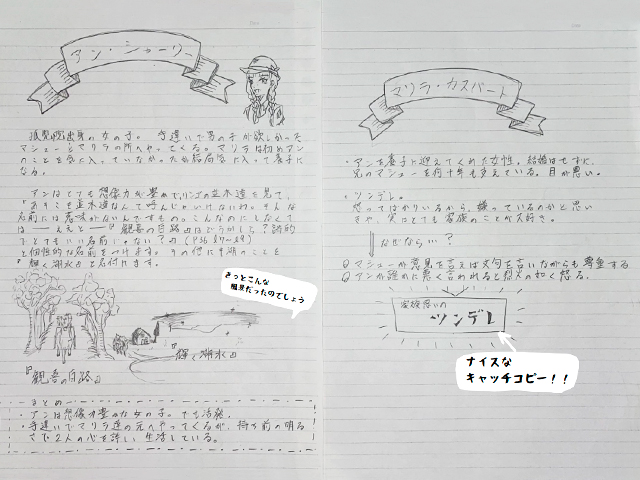 アン・シャーリー
孤児院出身の女の子。手違いで男の子が欲しかった
マシューとマリラの所へやってくる。マリラは初めアン
のことを気に入っていなかったが結局気に入って養子に
なる。
アンはとても想像力が豊かで、リンゴの並木道を見て、
『あそこを並木道なんて呼んじゃいけないわ。そんな
名前には意味がないんですもの。こんなのにしなくて
は――ええと――『歓喜の白路』はどうかしら?詩的
でとてもいい名前じゃない?』
と個性的な名前をつけます。その他にも湖のことを
『輝く湖水』と名付けます。
きっとこんな
風景だったのでしょう
『輝く湖水』
『歓喜の白路』
まとめ
・アンは想像力豊かな女の子。でも活発。
・手違いでマリラ達の元へやってくるが、持ち前の明る
さで2人の心を許し、生活している。
マリラ・カスバート
・アンを養子に迎えてくれた女性。結婚はせずに、
兄のマシューを何十年も支えている。目が悪い。
・ツンデレ。
怒ってばかりいるから、嫌っているのかと思い
きや、実はとても家族のことが大好き。
なぜなら…?
①マシューが意見を言えば文句を言いながらも尊重する
②アンが誰かに悪く言われると烈火の如く怒る。
家族思いの
ツンデレ
ナイスな
キャッチコピー!!